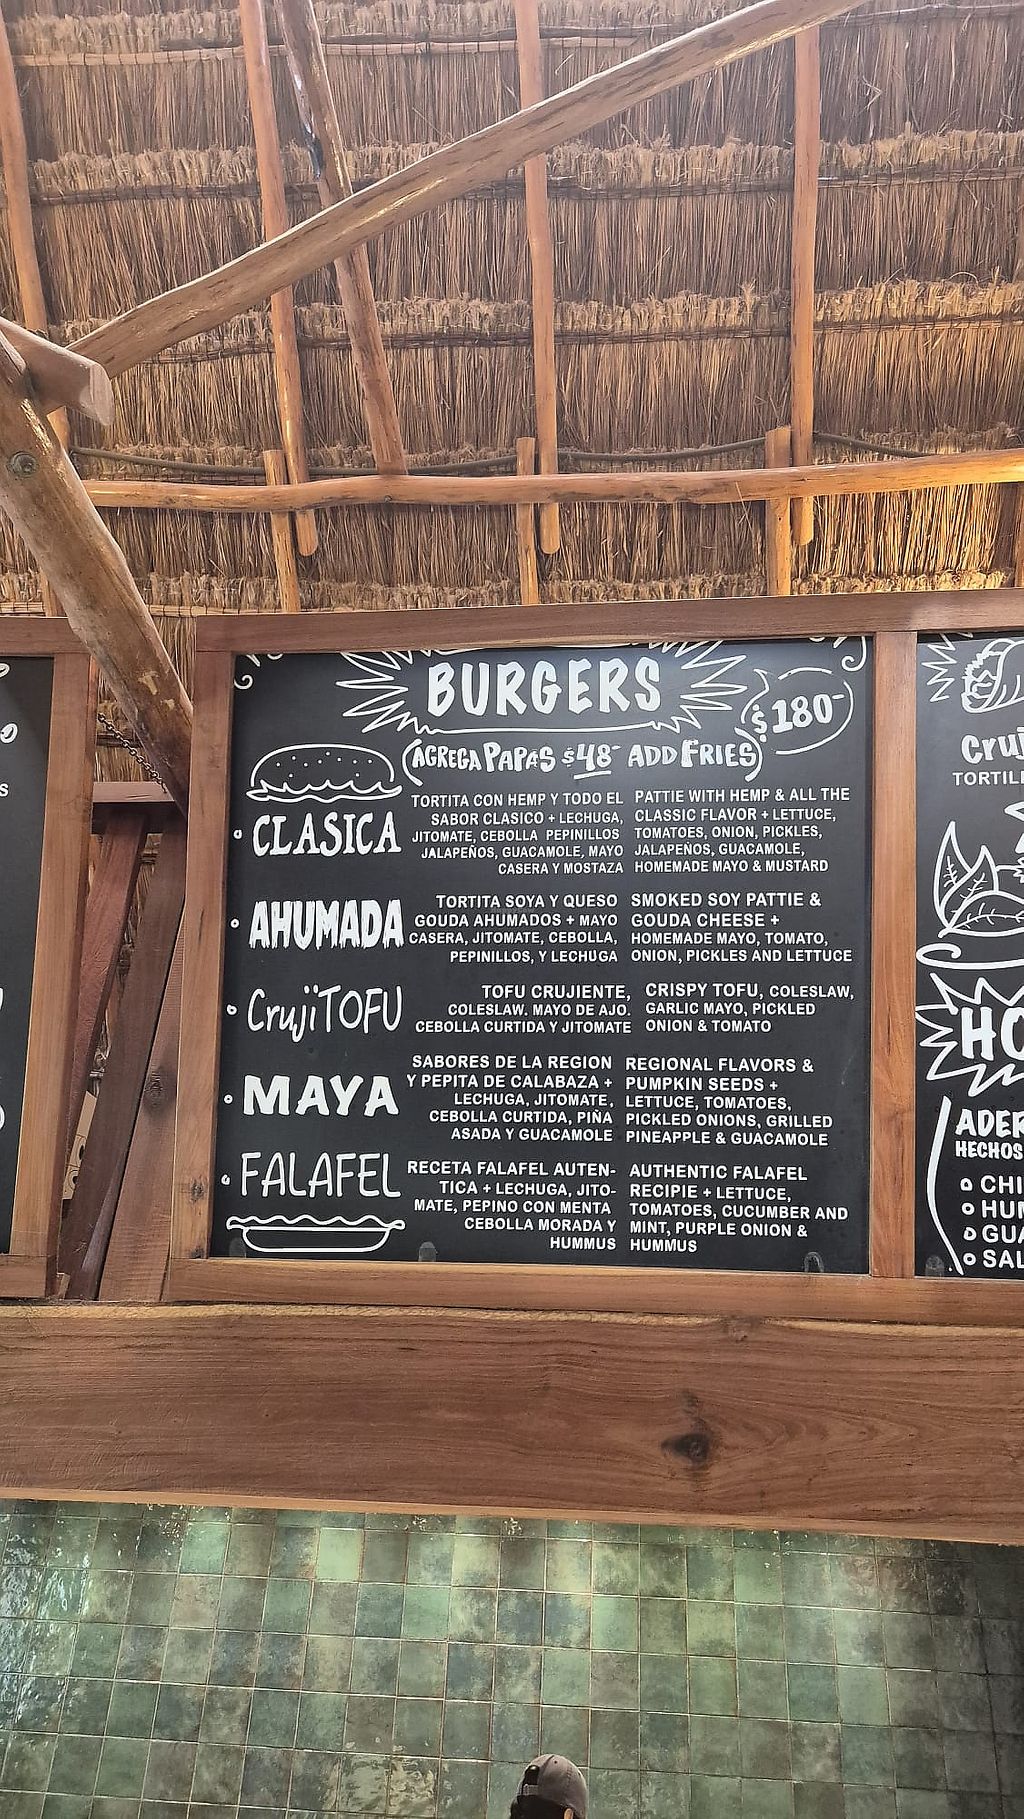 BURGERS
$180-
(AGREGA PAPAS $48- ADD FRIES)
CLASICA
TORTITA CON HEMP Y TODO EL
SABOR CLASICO + LECHUGA,
JITOMATE, CEBOLLA PEPINILLOS
JALAPEÑOS, GUACAMOLE, MAYO
CASERA Y MOSTAZA
PATTIE WITH HEMP & ALL THE
CLASSIC FLAVOR + LETTUCE,
TOMATOES, ONION, PICKLES,
JALAPEÑOS, GUACAMOLE,
HOMEMADE MAYO & MUSTARD
AHUMADA
TORTITA SOYA Y QUESO
GOUDA AHUMADOS + MAYO
CASERA, JITOMATE, CEBOLLA,
PEPINILLOS, Y LECHUGA
SMOKED SOY PATTIE &
GOUDA CHEESE +
HOMEMADE MAYO, TOMATO,
ONION, PICKLES AND LETTUCE
CrujiTOFU
TOFU CRUJIENTE,
COLESLAW. MAYO DE AJO.
CEBOLLA CURTIDA Y JITOMATE
CRISPY TOFU, COLESLAW,
GARLIC MAYO, PICKLED
ONION & TOMATO
MAYA
SABORES DE LA REGION
Y PEPITA DE CALABAZA +
LECHUGA, JITOMATE,
CEBOLLA CURTIDA, PIÑA
ASADA Y GUACAMOLE
REGIONAL FLAVORS &
PUMPKIN SEEDS +
LETTUCE, TOMATOES,
PICKLED ONIONS, GRILLED
PINEAPPLE & GUACAMOLE
FALAFEL
RECETA FALAFEL AUTEN-
TICA + LECHUGA, JITO-
MATE, PEPINO CON MENTA
CEBOLLA MORADA Y
HUMMUS
AUTHENTIC FALAFEL
RECIPIE + LETTUCE,
TOMATOES, CUCUMBER AND
MINT, PURPLE ONION &
HUMMUS
HECHOS